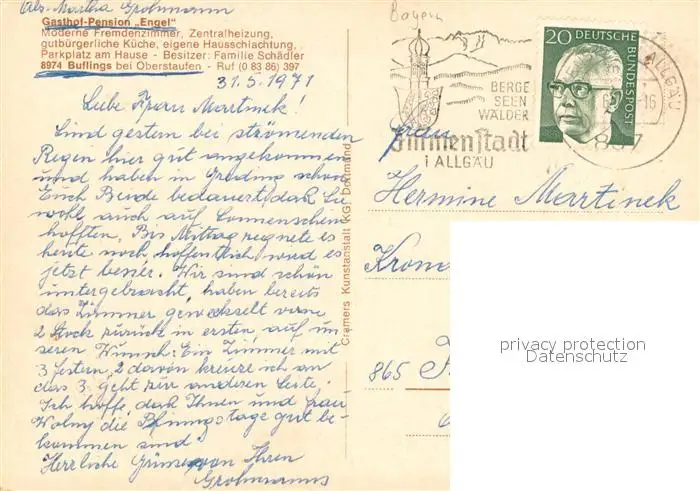 Abs. Martha Grohmann
Gasthof-Pension „Engel"
Moderne Fremdenzimmer, Zentralheizung,
gutbürgerliche Küche, eigene Hausschlachtung,
Parkplatz am Hause - Besitzer: Familie Schädler
8974 Buflings bei Oberstaufen - Ruf (0 83 86) 397
31.5.1971
Liebe Frau Martinek!
Sind gestern bei strömenden
Regen hier gut angekommen
und haben in Greding schon
Euch Beide bedauert, daß Sie
wohl auch auf Sonnenschein
hofften. Bis Mittag regnete es
heute noch, hoffentlich wird es
jetzt besser. Wir sind schön
untergebracht, haben bereits
das Zimmer gewechselt vorne
2 Stock zurück in ersten, auf un-
seren Wunsch: Ein Zimmer mit
3 Fenstern, 2 davon kreuze ich an
das 3. geht zur anderen Seite.
Ich hoffe, daß Ihnen und Frau
Wolny die Pfingstage gut be-
kommen sind.
Herzliche Grüsse von Ihren
Grohmanns
Cramers Kunstanstalt KG. Dortmund
Bayern
BERGE
SEEN
WÄLDER
Immenstadt
i ALLGÄU
ALLGÄU
16
897
20 DEUTSCHE BUNDESPOST
Frau
Hermine Martinek
Krona
865
privacy protection
Datenschutz